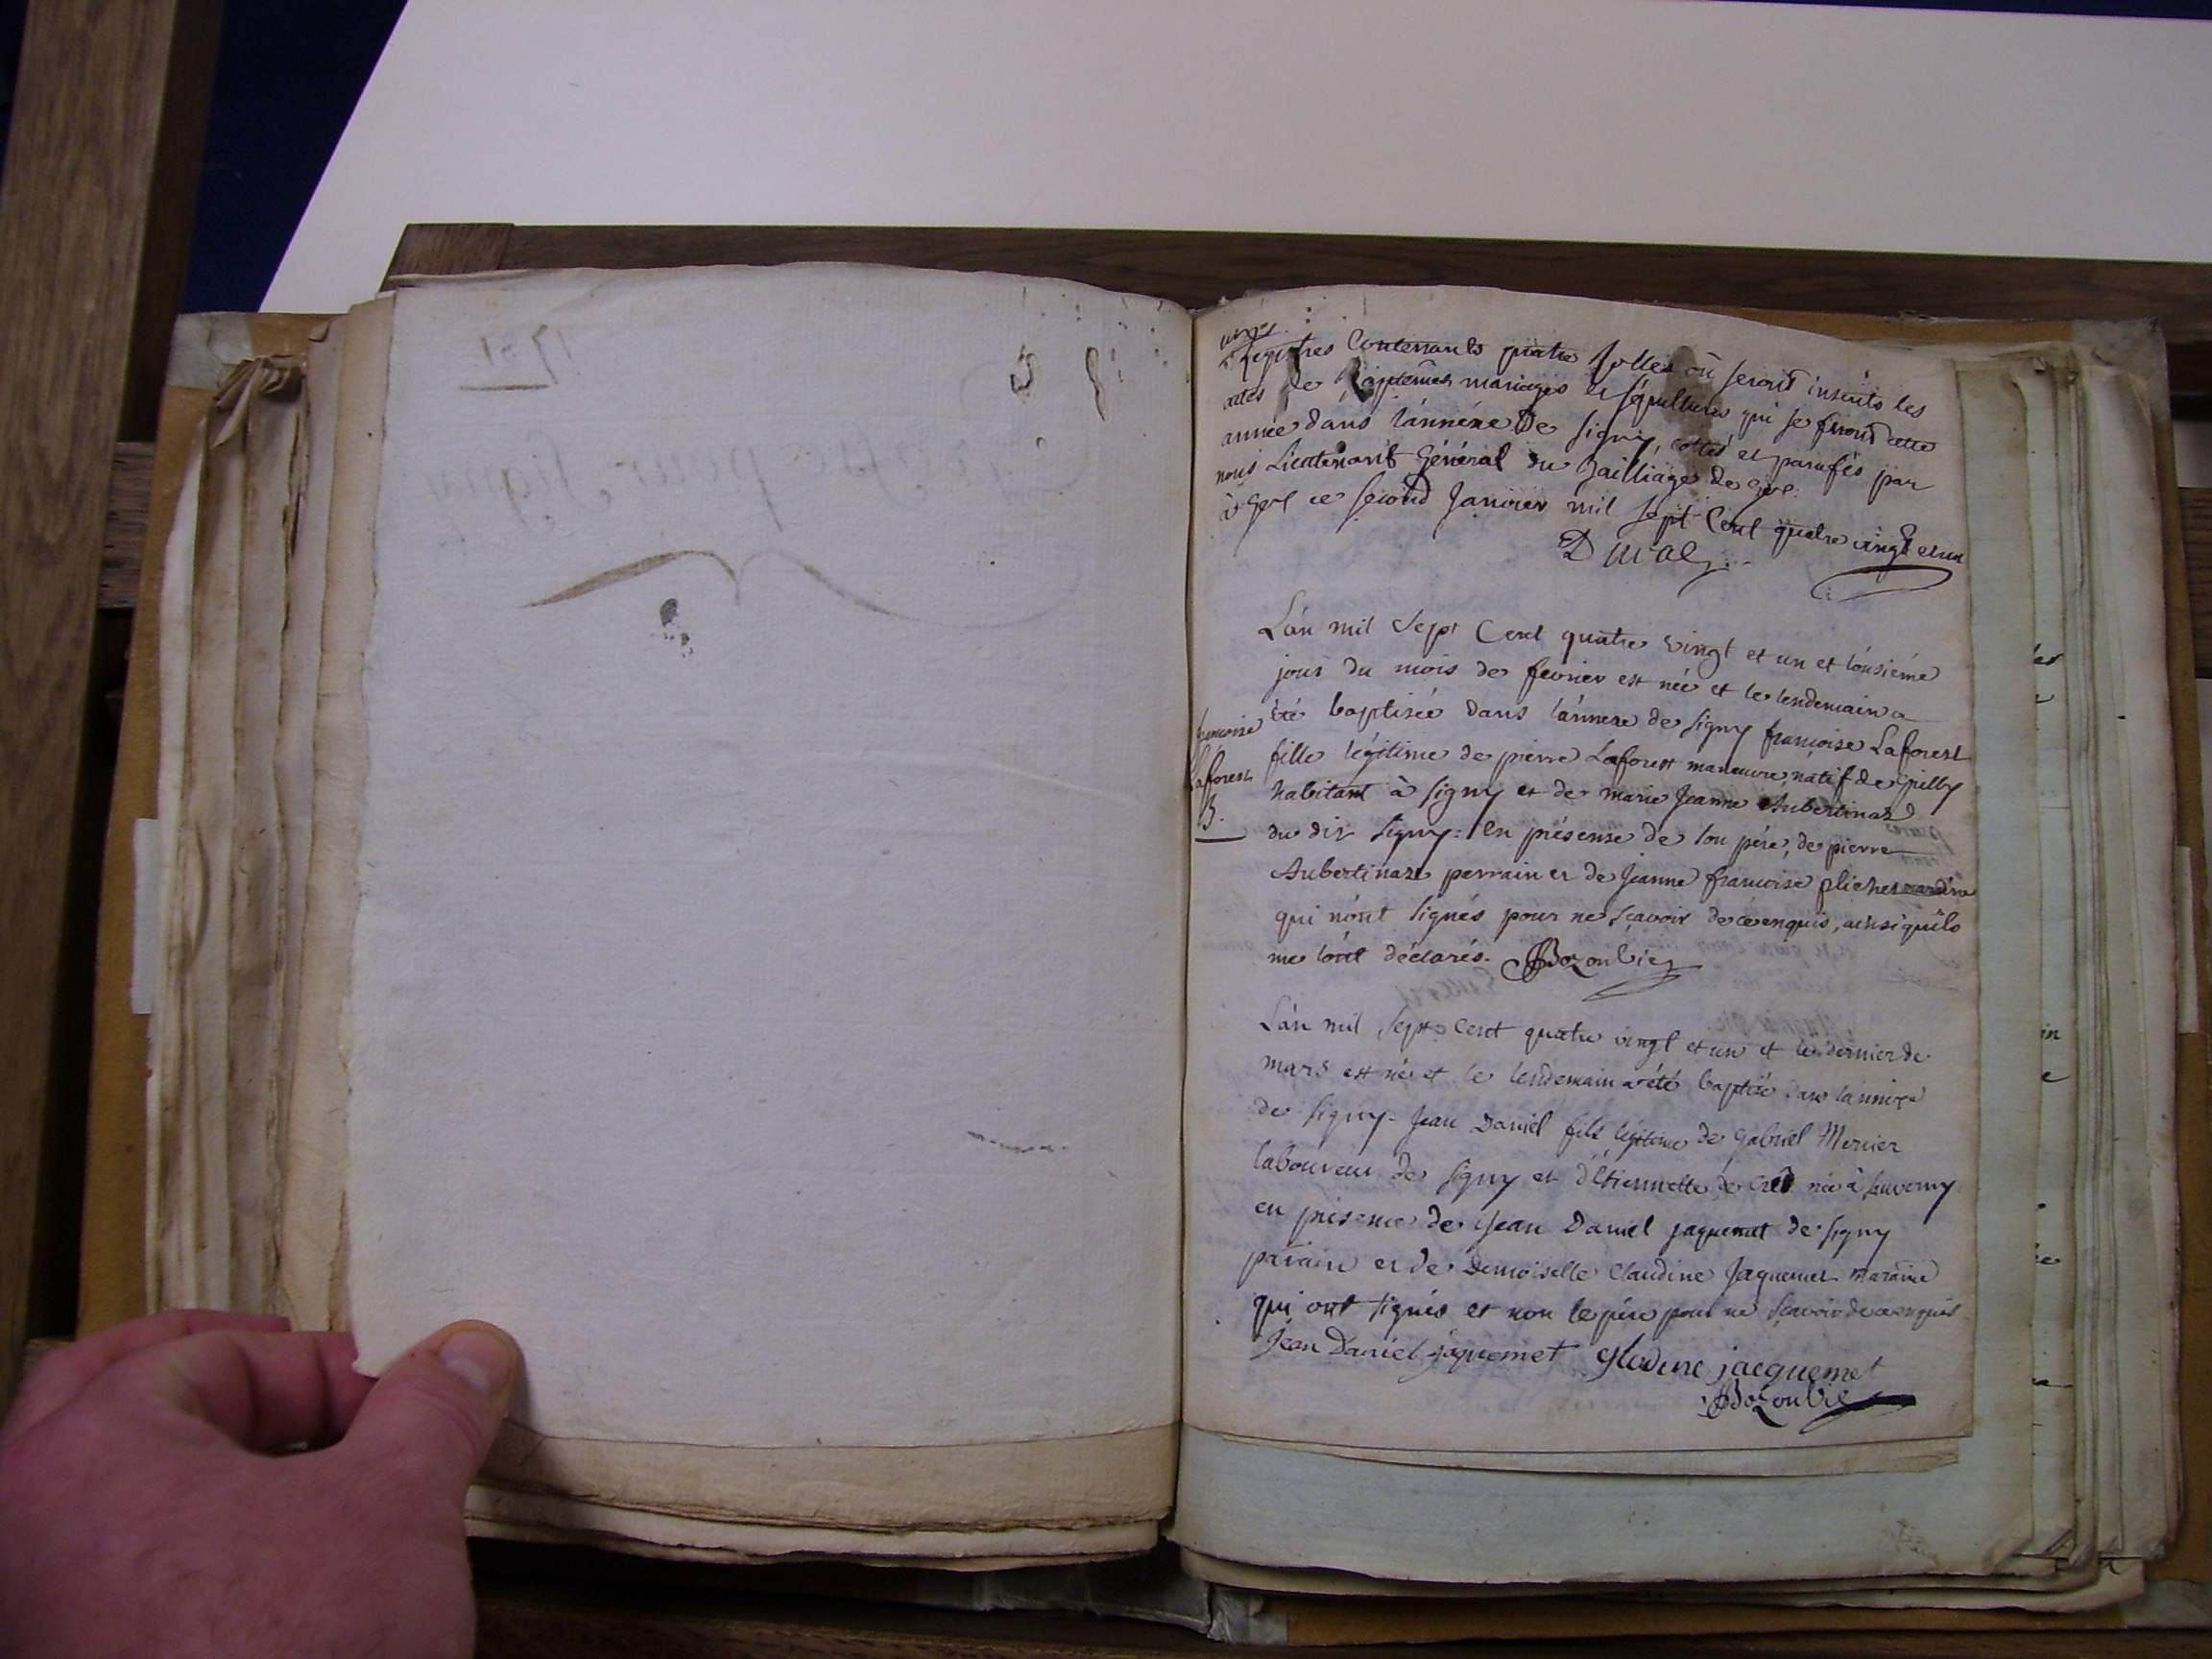 Registres Contenants quatre folles où seront inscrits les
actes de Baptêmes mariages et sépultures qui se feront cette
année dans l'annéxe de Signy, cottés et parafés par
nous Lieutenant Général du Bailliage de Gex.
à Gex ce second Janvier mil sept Cent quatre vingt et un
Duval
L'an mil sept Cent quatre vingt et un et l'onsiéme
jour du mois de fevrier est née et le lendemain a
été baptisée dans l'annexe de Signy francoise Laforest
fille légitime de pierre Laforest manœuvre, natif de
habitant à Signy et de marie Jeanne Aubertinaz
du dit Signy: en présense de son pére, de pierre
Aubertinaz parrain et de Jeanne francoise
qui n'ont signés pour ne sçavoir de ce enquis, ainsi qu'ils
me l'ont déclarés. Bozonbier
francoise
Laforest
B.
L'an mil sept Cent quatre vingt et un et le dernier de
mars est né et le lendemain a été baptisé dans l'annexe
de Signy Jean Daniel fils légitime de Gabriel Mercier
laboureur de Signy et d'Etiennette de née à Sauverny
en présence de Jean Daniel jaquemet de Signy
parain et de Demoiselle Claudine Jaquemet maraine
qui ont signés et non le pére pour ne sçavoir de ce enquis
Jean Daniel jaquemet Glodine jacquemet